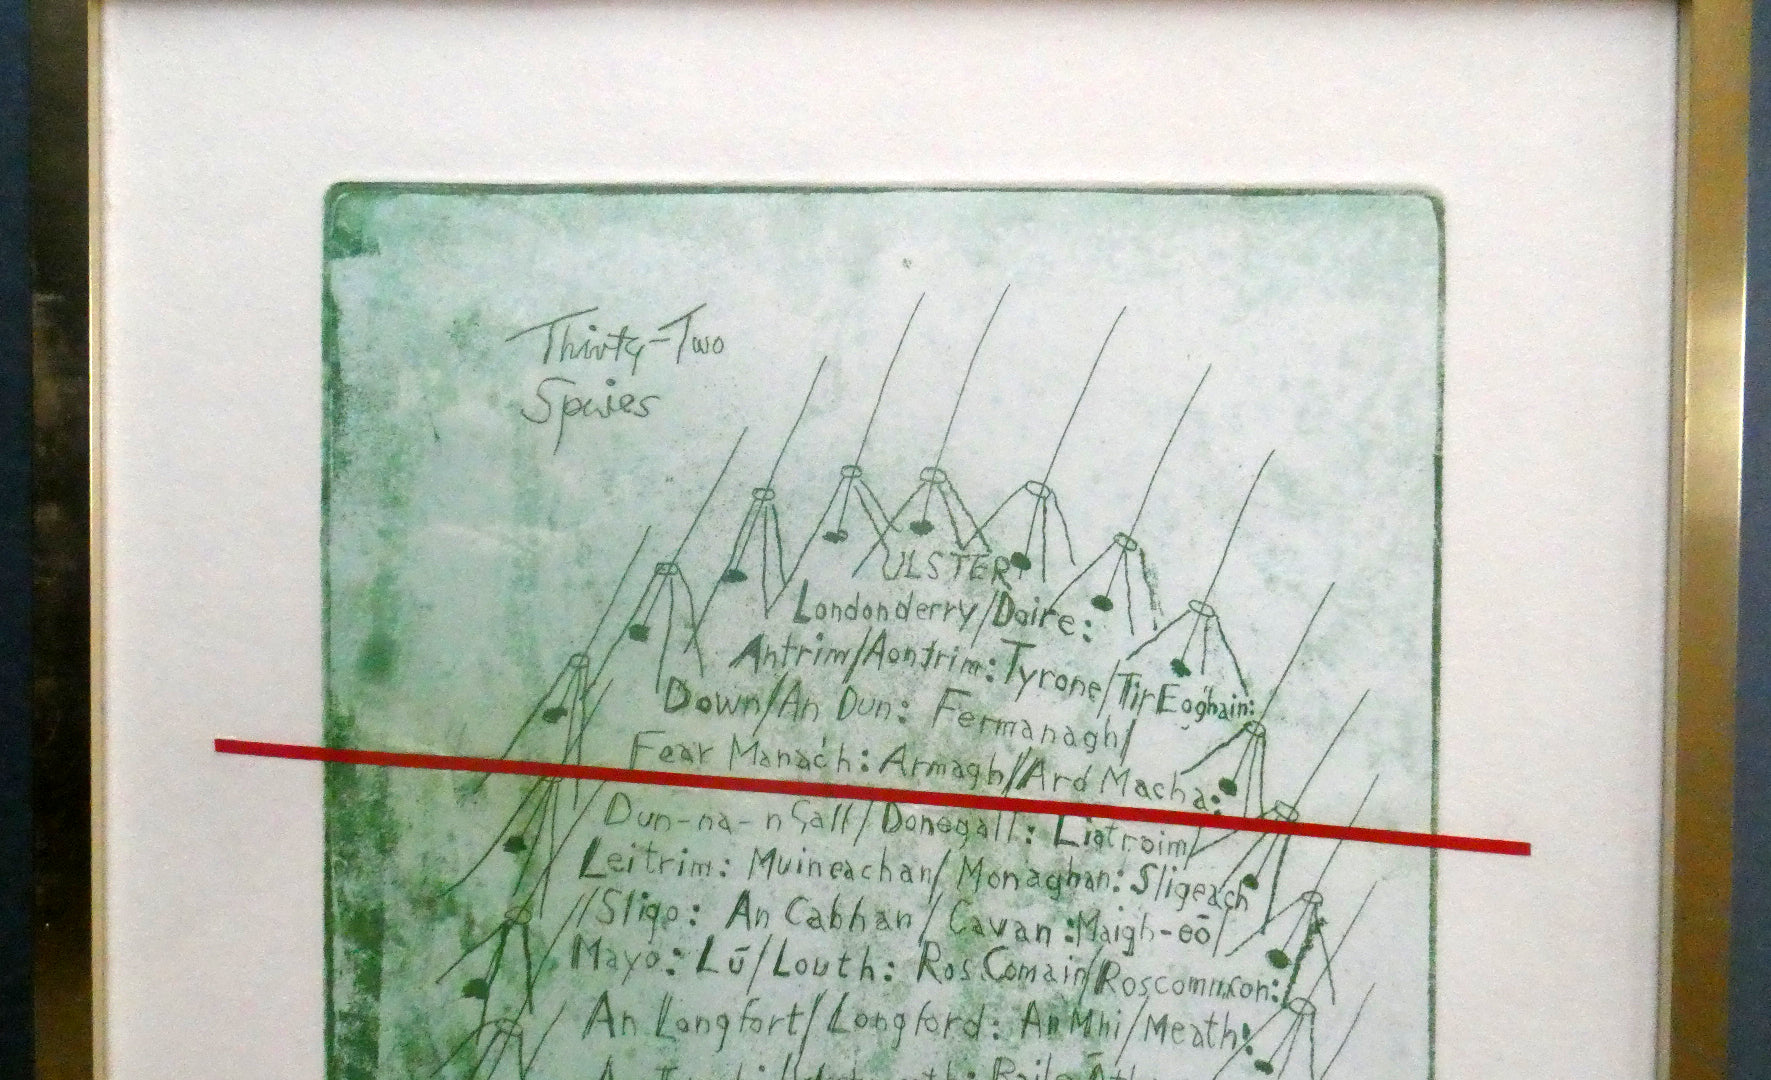 Thirty-Two
Spies
ULSTER
Londonderry/Doire:
Antrim/Aontrim: Tyrone/Tir Eoghain:
Down/An Dun: Fermanagh/
Fear Manach: Armagh/Ard Macha:
Dun-na-nGall/Donegall: Liatroim/
Leitrim: Muineachan/Monaghan: Sligeach
/Sligo: An Cabhan/Cavan: Maigh-eō/
Mayo: Lū/Louth: Ros Comain/Roscommon:
An Longfort/Longford: An Mhi/Meath: